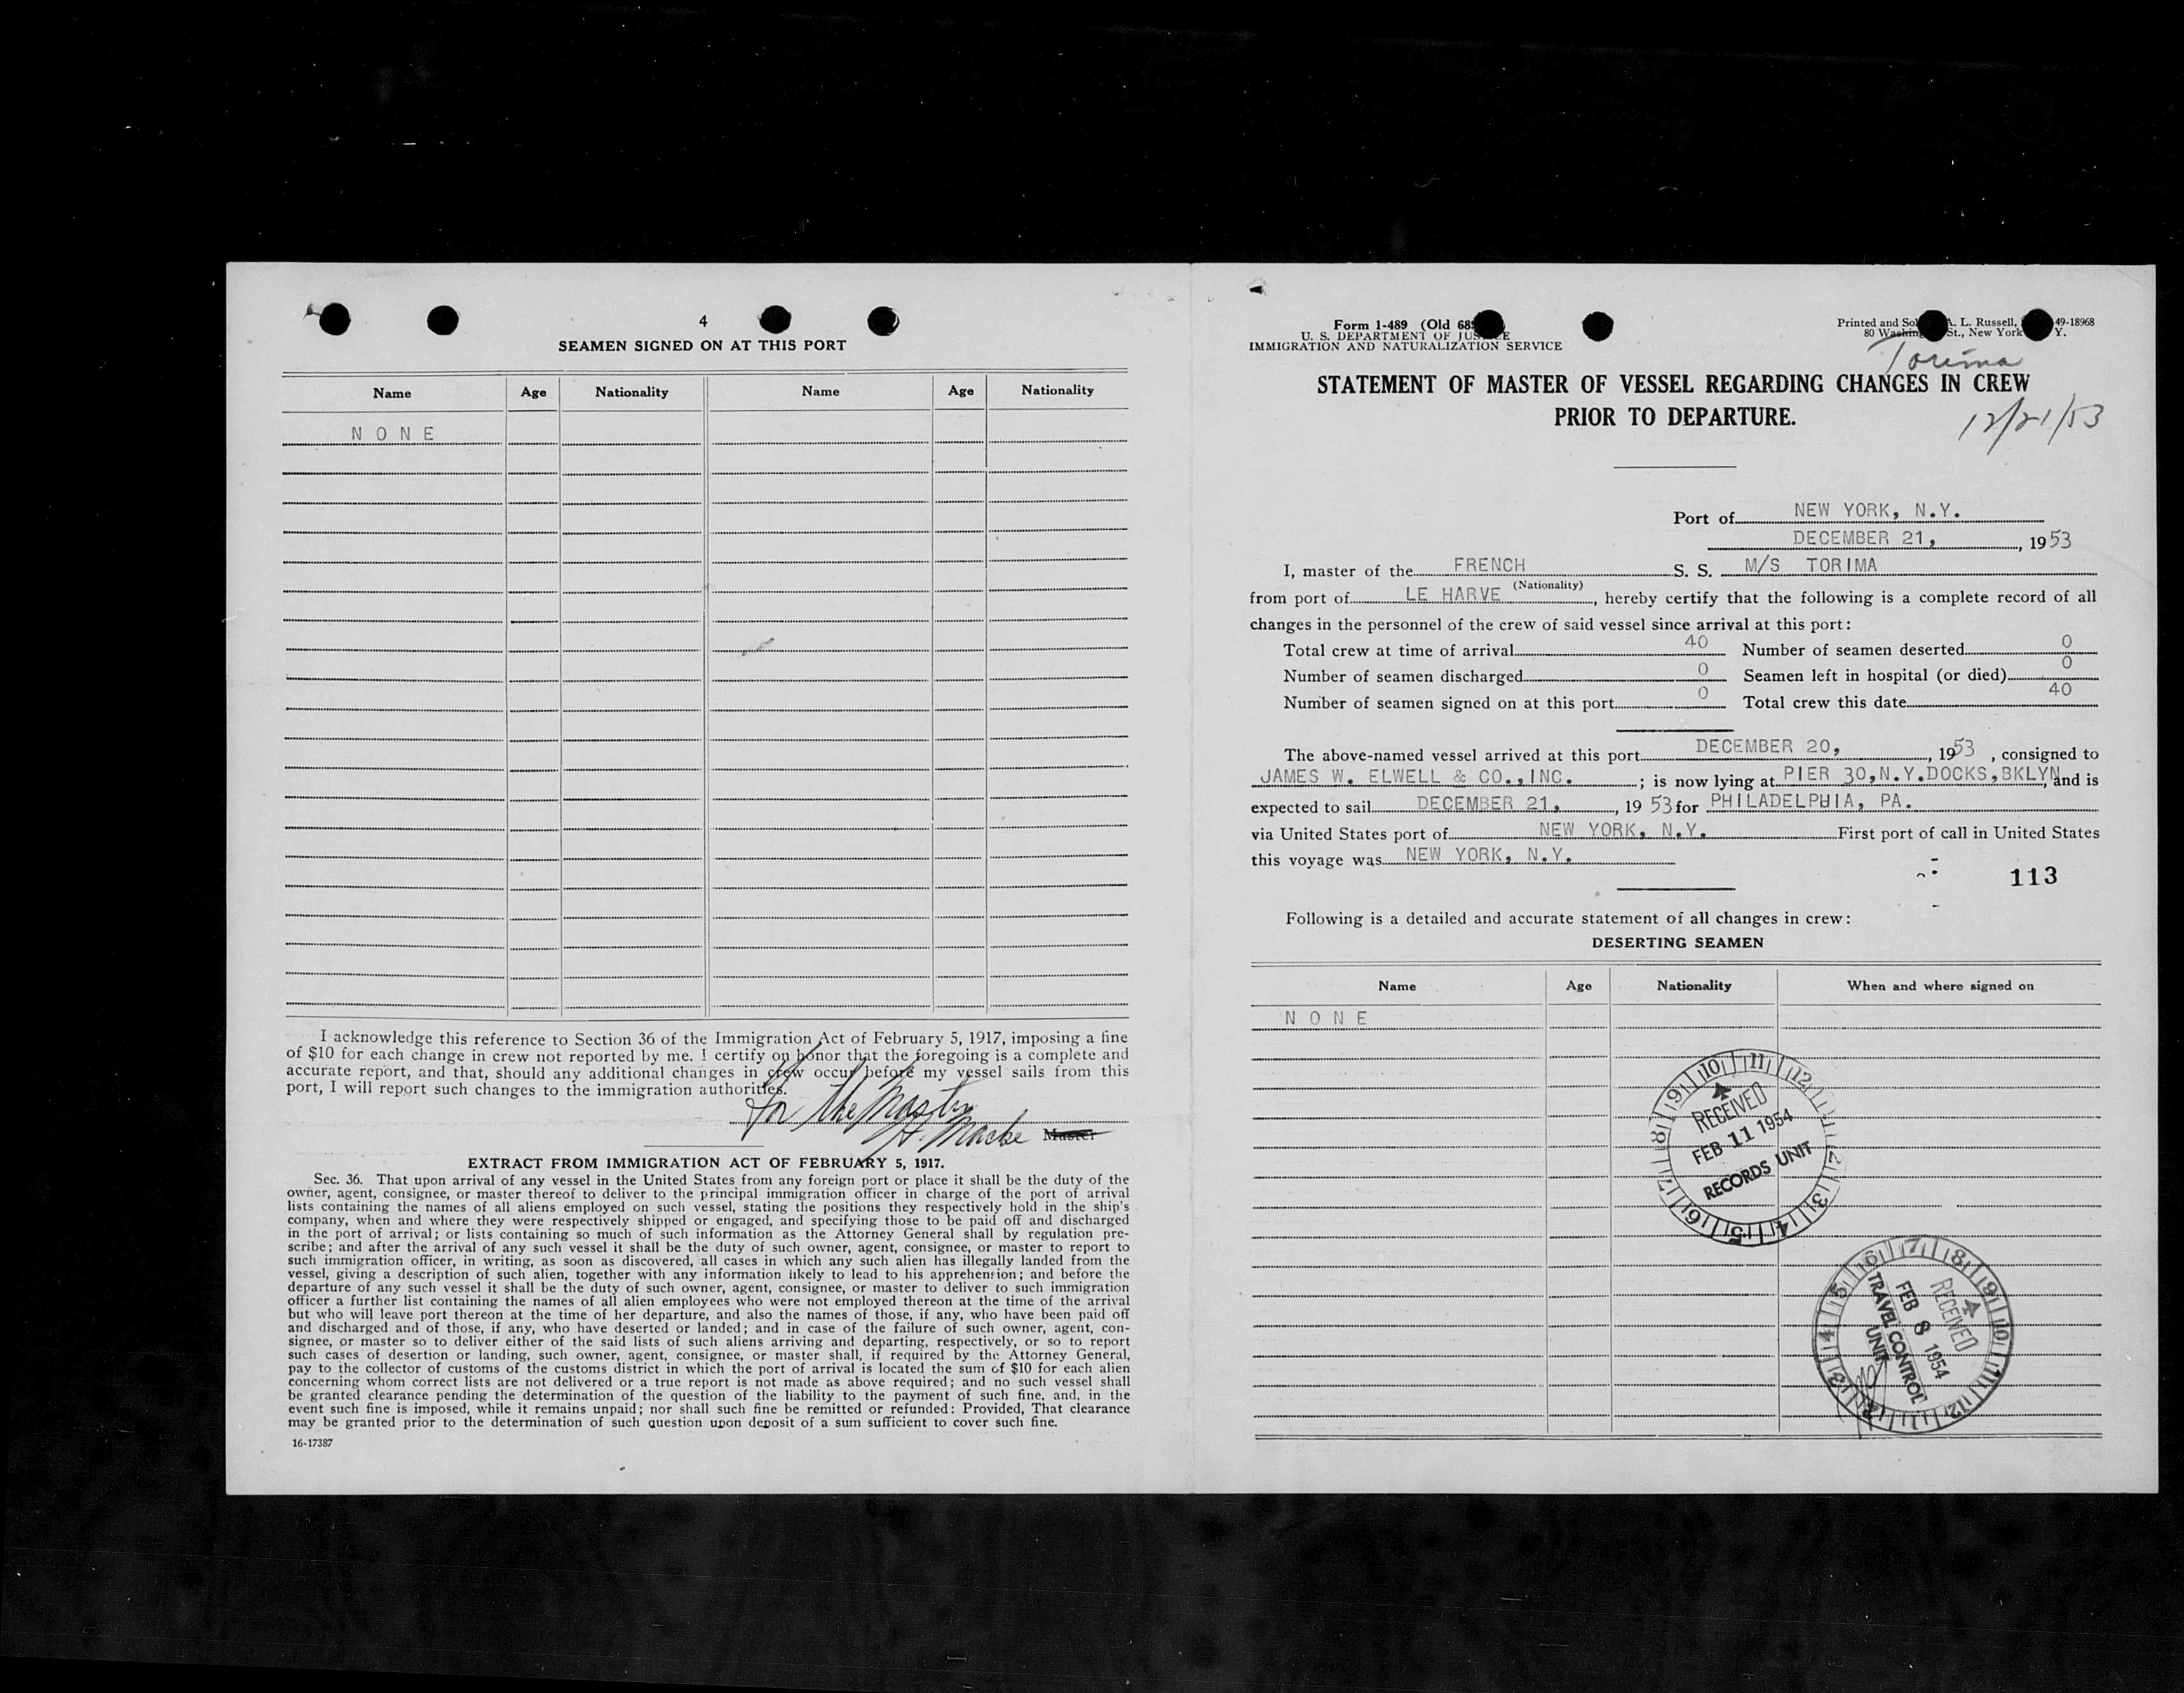 4
SEAMEN SIGNED ON AT THIS PORT
Name Age Nationality Name Age Nationality
NONE
I acknowledge this reference to Section 36 of the Immigration Act of February 5, 1917, imposing a fine
of $10 for each change in crew not reported by me. I certify on honor that the foregoing is a complete and
accurate report, and that, should any additional changes in crew occur before my vessel sails from this
port, I will report such changes to the immigration authorities.
for the Master
Master
EXTRACT FROM IMMIGRATION ACT OF FEBRUARY 5, 1917.
Sec. 36. That upon arrival of any vessel in the United States from any foreign port or place it shall be the duty of the
owner, agent, consignee, or master thereof to deliver to the principal immigration officer in charge of the port of arrival
lists containing the names of all aliens employed on such vessel, stating the positions they respectively hold in the ship's
company, when and where they were respectively shipped or engaged, and specifying those to be paid off and discharged
in the port of arrival; or lists containing so much of such information as the Attorney General shall by regulation pre-
scribe; and after the arrival of any such vessel it shall be the duty of such owner, agent, consignee, or master to report to
such immigration officer, in writing, as soon as discovered, all cases in which any such alien has illegally landed from the
vessel, giving a description of such alien, together with any information likely to lead to his apprehension; and before the
departure of any such vessel it shall be the duty of such owner, agent, consignee, or master to deliver to such immigration
officer a further list containing the names of all alien employees who were not employed thereon at the time of the arrival
but who will leave port thereon at the time of her departure, and also the names of those, if any, who have been paid off
and discharged and of those, if any, who have deserted or landed; and in case of the failure of such owner, agent, con-
signee, or master so to deliver either of the said lists of such aliens arriving and departing, respectively, or so to report
such cases of desertion or landing, such owner, agent, consignee, or master shall, if required by the Attorney General,
pay to the collector of customs of the customs district in which the port of arrival is located the sum of $10 for each alien
concerning whom correct lists are not delivered or a true report is not made as above required; and no such vessel shall
be granted clearance pending the determination of the question of the liability to the payment of such fine, and, in the
event such fine is imposed, while it remains unpaid; nor shall such fine be remitted or refunded: Provided, That clearance
may be granted prior to the determination of such question upon deposit of a sum sufficient to cover such fine.
16-17387
Form 1-489 (Old 68
U. S. DEPARTMENT OF JUSTICE
IMMIGRATION AND NATURALIZATION SERVICE
Printed and Sol A. L. Russell, 49-18968
80 Washing St., New York Y.
Torima
STATEMENT OF MASTER OF VESSEL REGARDING CHANGES IN CREW
PRIOR TO DEPARTURE.
12/21/53
Port of NEW YORK, N.Y.
DECEMBER 21, , 1953
I, master of the FRENCH S. S. M/S TORIMA
(Nationality)
from port of LE HARVE , hereby certify that the following is a complete record of all
changes in the personnel of the crew of said vessel since arrival at this port:
Total crew at time of arrival 40 Number of seamen deserted 0
Number of seamen discharged 0 Seamen left in hospital (or died) 0
Number of seamen signed on at this port 0 Total crew this date 40
The above-named vessel arrived at this port DECEMBER 20, , 1953 , consigned to
JAMES W. ELWELL & CO.,INC. ; is now lying at PIER 30,N.Y.DOCKS,BKLYN, and is
expected to sail DECEMBER 21, , 19 53 for PHILADELPHIA, PA.
via United States port of NEW YORK, N.Y. First port of call in United States
this voyage was NEW YORK, N.Y.
113
Following is a detailed and accurate statement of all changes in crew:
DESERTING SEAMEN
Name Age Nationality When and where signed on
NONE
RECEIVED
FEB 11 1954
RECORDS UNIT
RECEIVED
FEB 8 1954
TRAVEL CONTROL
UNIT